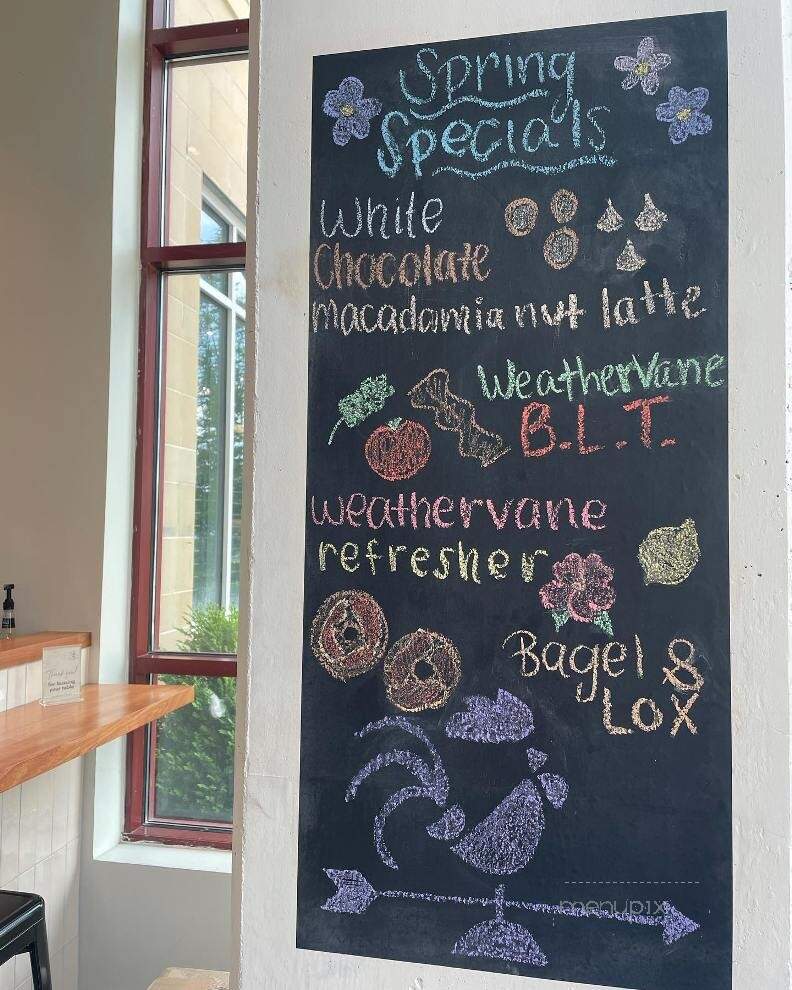 Spring
Specials
White
Chocolate
macadamia nut latte
Weathervane
B.L.T.
weathervane
refresher
Bagel &
Lox
Thank you!
for bussing
your table
menupix